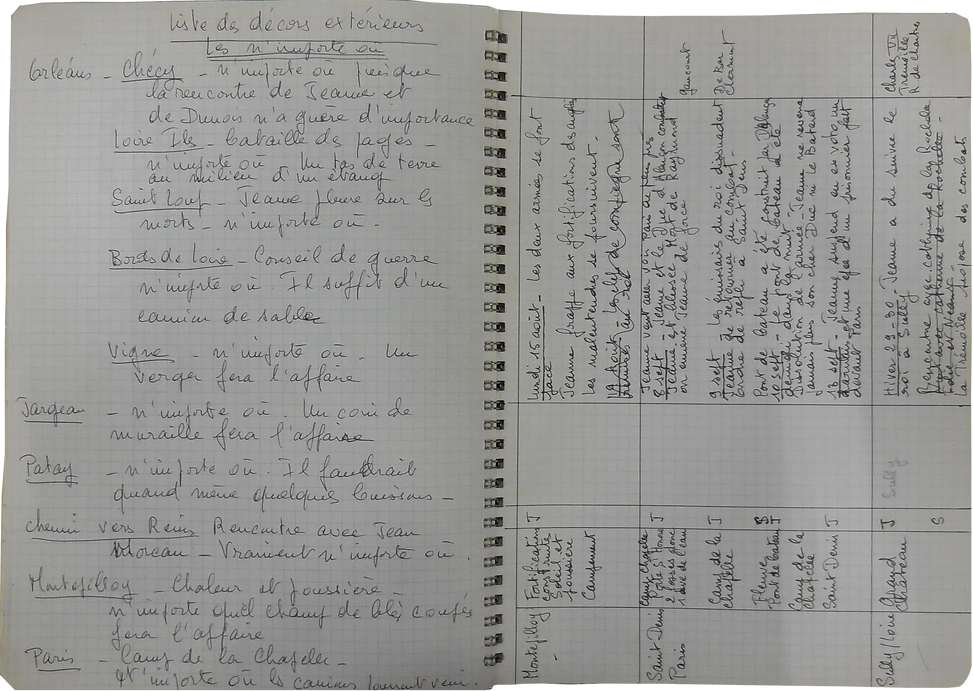 Liste des décors extérieurs
Les n'importe où
Orléans - Chécy - n'importe où puisque
la rencontre de Jeanne et
de Dunois n'a guère d'importance
Loire Iles - bataille de pages -
n'importe où - Un tas de terre
au milieu d'un étang
Saint Loup - Jeanne pleure sur les
morts - n'importe où -
Bords de Loire - Conseil de guerre
n'importe où. Il suffit d'un
camion de sable
Vigne - n'importe où. Un
verger fera l'affaire
Jargeau - n'importe où. Un coin de
muraille fera l'affaire
Patay - n'importe où. Il faudrait
quand même quelques buissons -
chemin vers Reims Rencontre avec Jean
Moreau - Vraiment n'importe où.
Montepilloy - Chaleur et poussière -
n'importe quel champ de blés coupés
fera l'affaire
Paris - Camp de la Chapelle -
N'importe où les camions peuvent venir.
Montepilloy
Fortification
construite
Soleil et
poussière
Campement
J
lundi 15 août - Les deux armées se font
face
Jeanne frappe aux fortifications des anglais
Les malentendus se poursuivent -
Saint Denis
Paris
Camp Chapelle
Porte St Honoré
2 fosses dont
1 avec de l'eau
J
Jeanne veut aller voir Paris de plus près
8 sept - Jeanne et le Duc d'Alençon combattent
Jeanne est blessée - Mort de Raymond
on emmène Jeanne de force -
Gaucourt
Camp de la
chapelle
J
9 sept - Les émissaires du roi dissuadent
Jeanne de retourner au combat -
Ordre de repli à Saint Denis
De Bar
Clermont
Fleuve
Pont de bateau
Pont de bateau a été construit par D'Alençon
10 sept - le pont de bateau a été
dans la nuit -
Camp de la
chapelle
Dissolution de l'armée - Jeanne ne reverra
jamais plus son cher Duc ni le Batard
Saint Denis
J
13 sept - Jeanne suspend en ex voto, une
armure et une épée d'un prisonnier fait
devant Paris
Sully/Loire
Grand
Château
J
Sully
Hiver 29-30 - Jeanne a du suivre le
roi à Sully
Charles VII
Tremoille
R de Chartres
S
Rencontre avec Cathrine de La Rochelle
La Trémoille refuse des combats